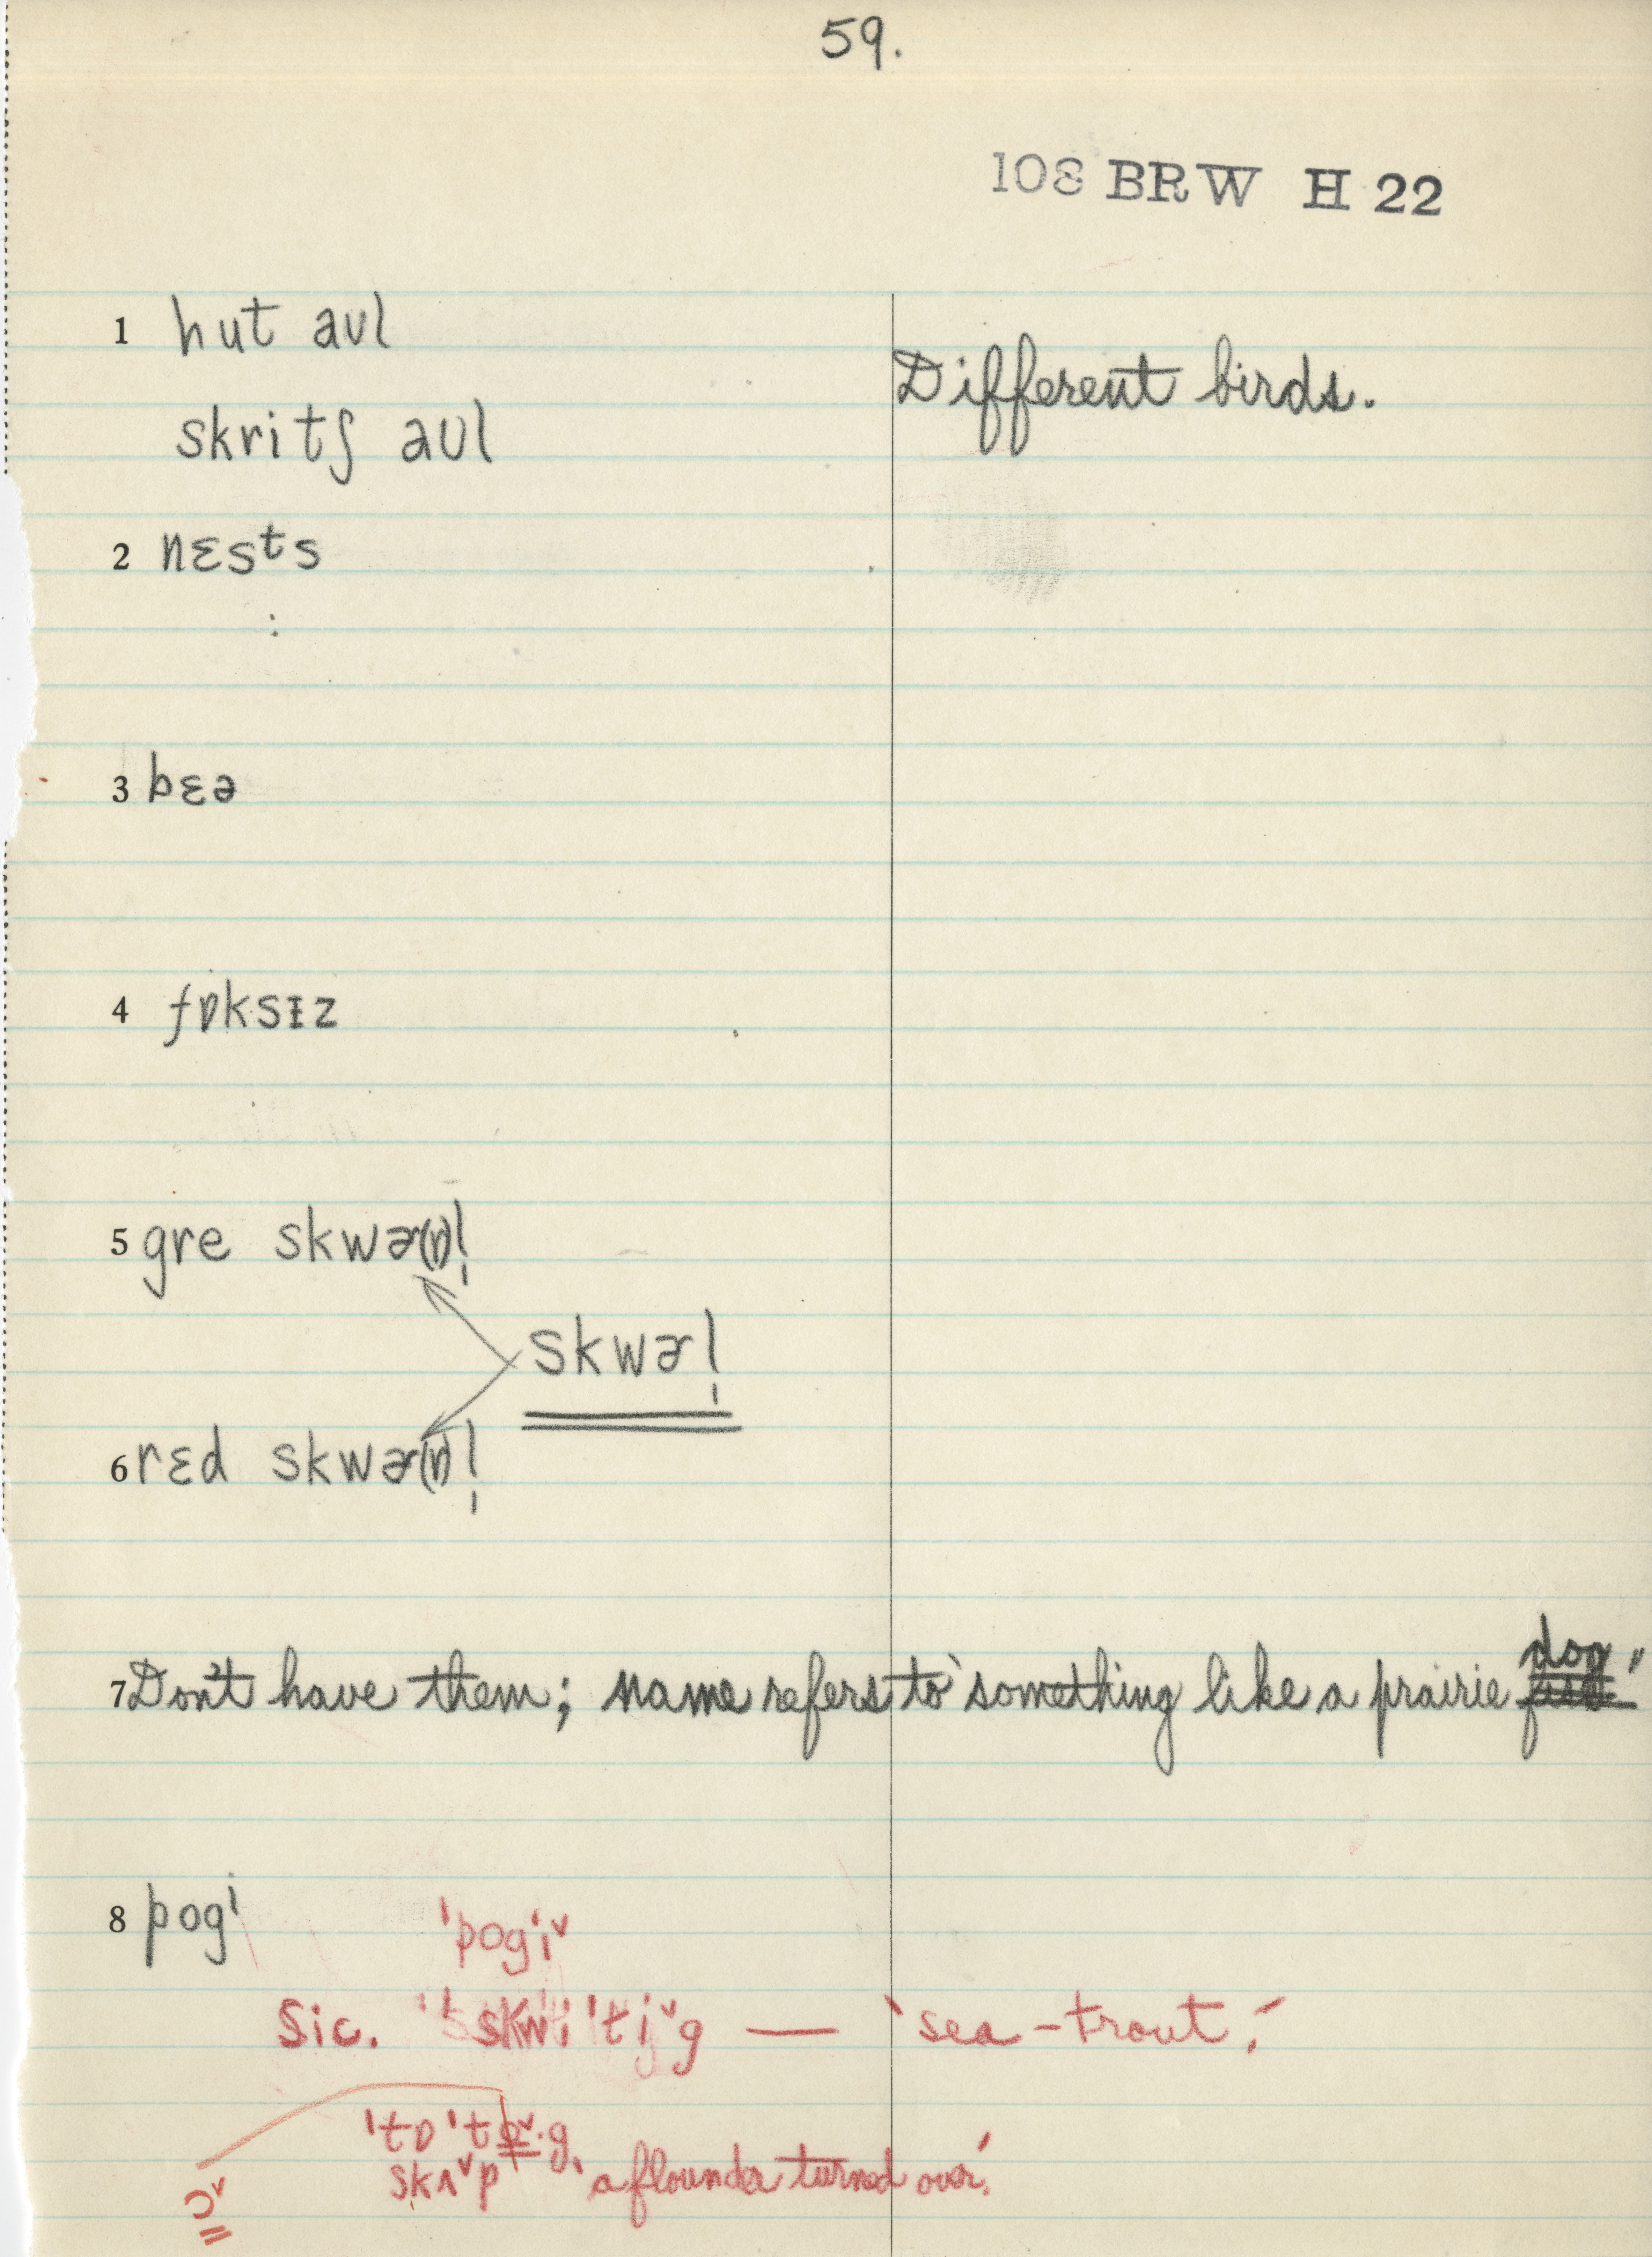 59.
108 BRW H 22
1 hut aʊl
Different birds.
skritʃ aʊl
2 nɛsts
3 bɛə
4 fɒksɪz
5 gre skwɚ(r)l̩
skwɚl̩
6 rɛd skwɚ(r)l̩
7 Don't have them; name refers to 'something like a prairie dog.'
8 pogi
'pog'i˅
Sic. 'skwi'ti˅g — 'sea-trout.'
'tɒ't
skʌ˅p 'a flounder turned over.'